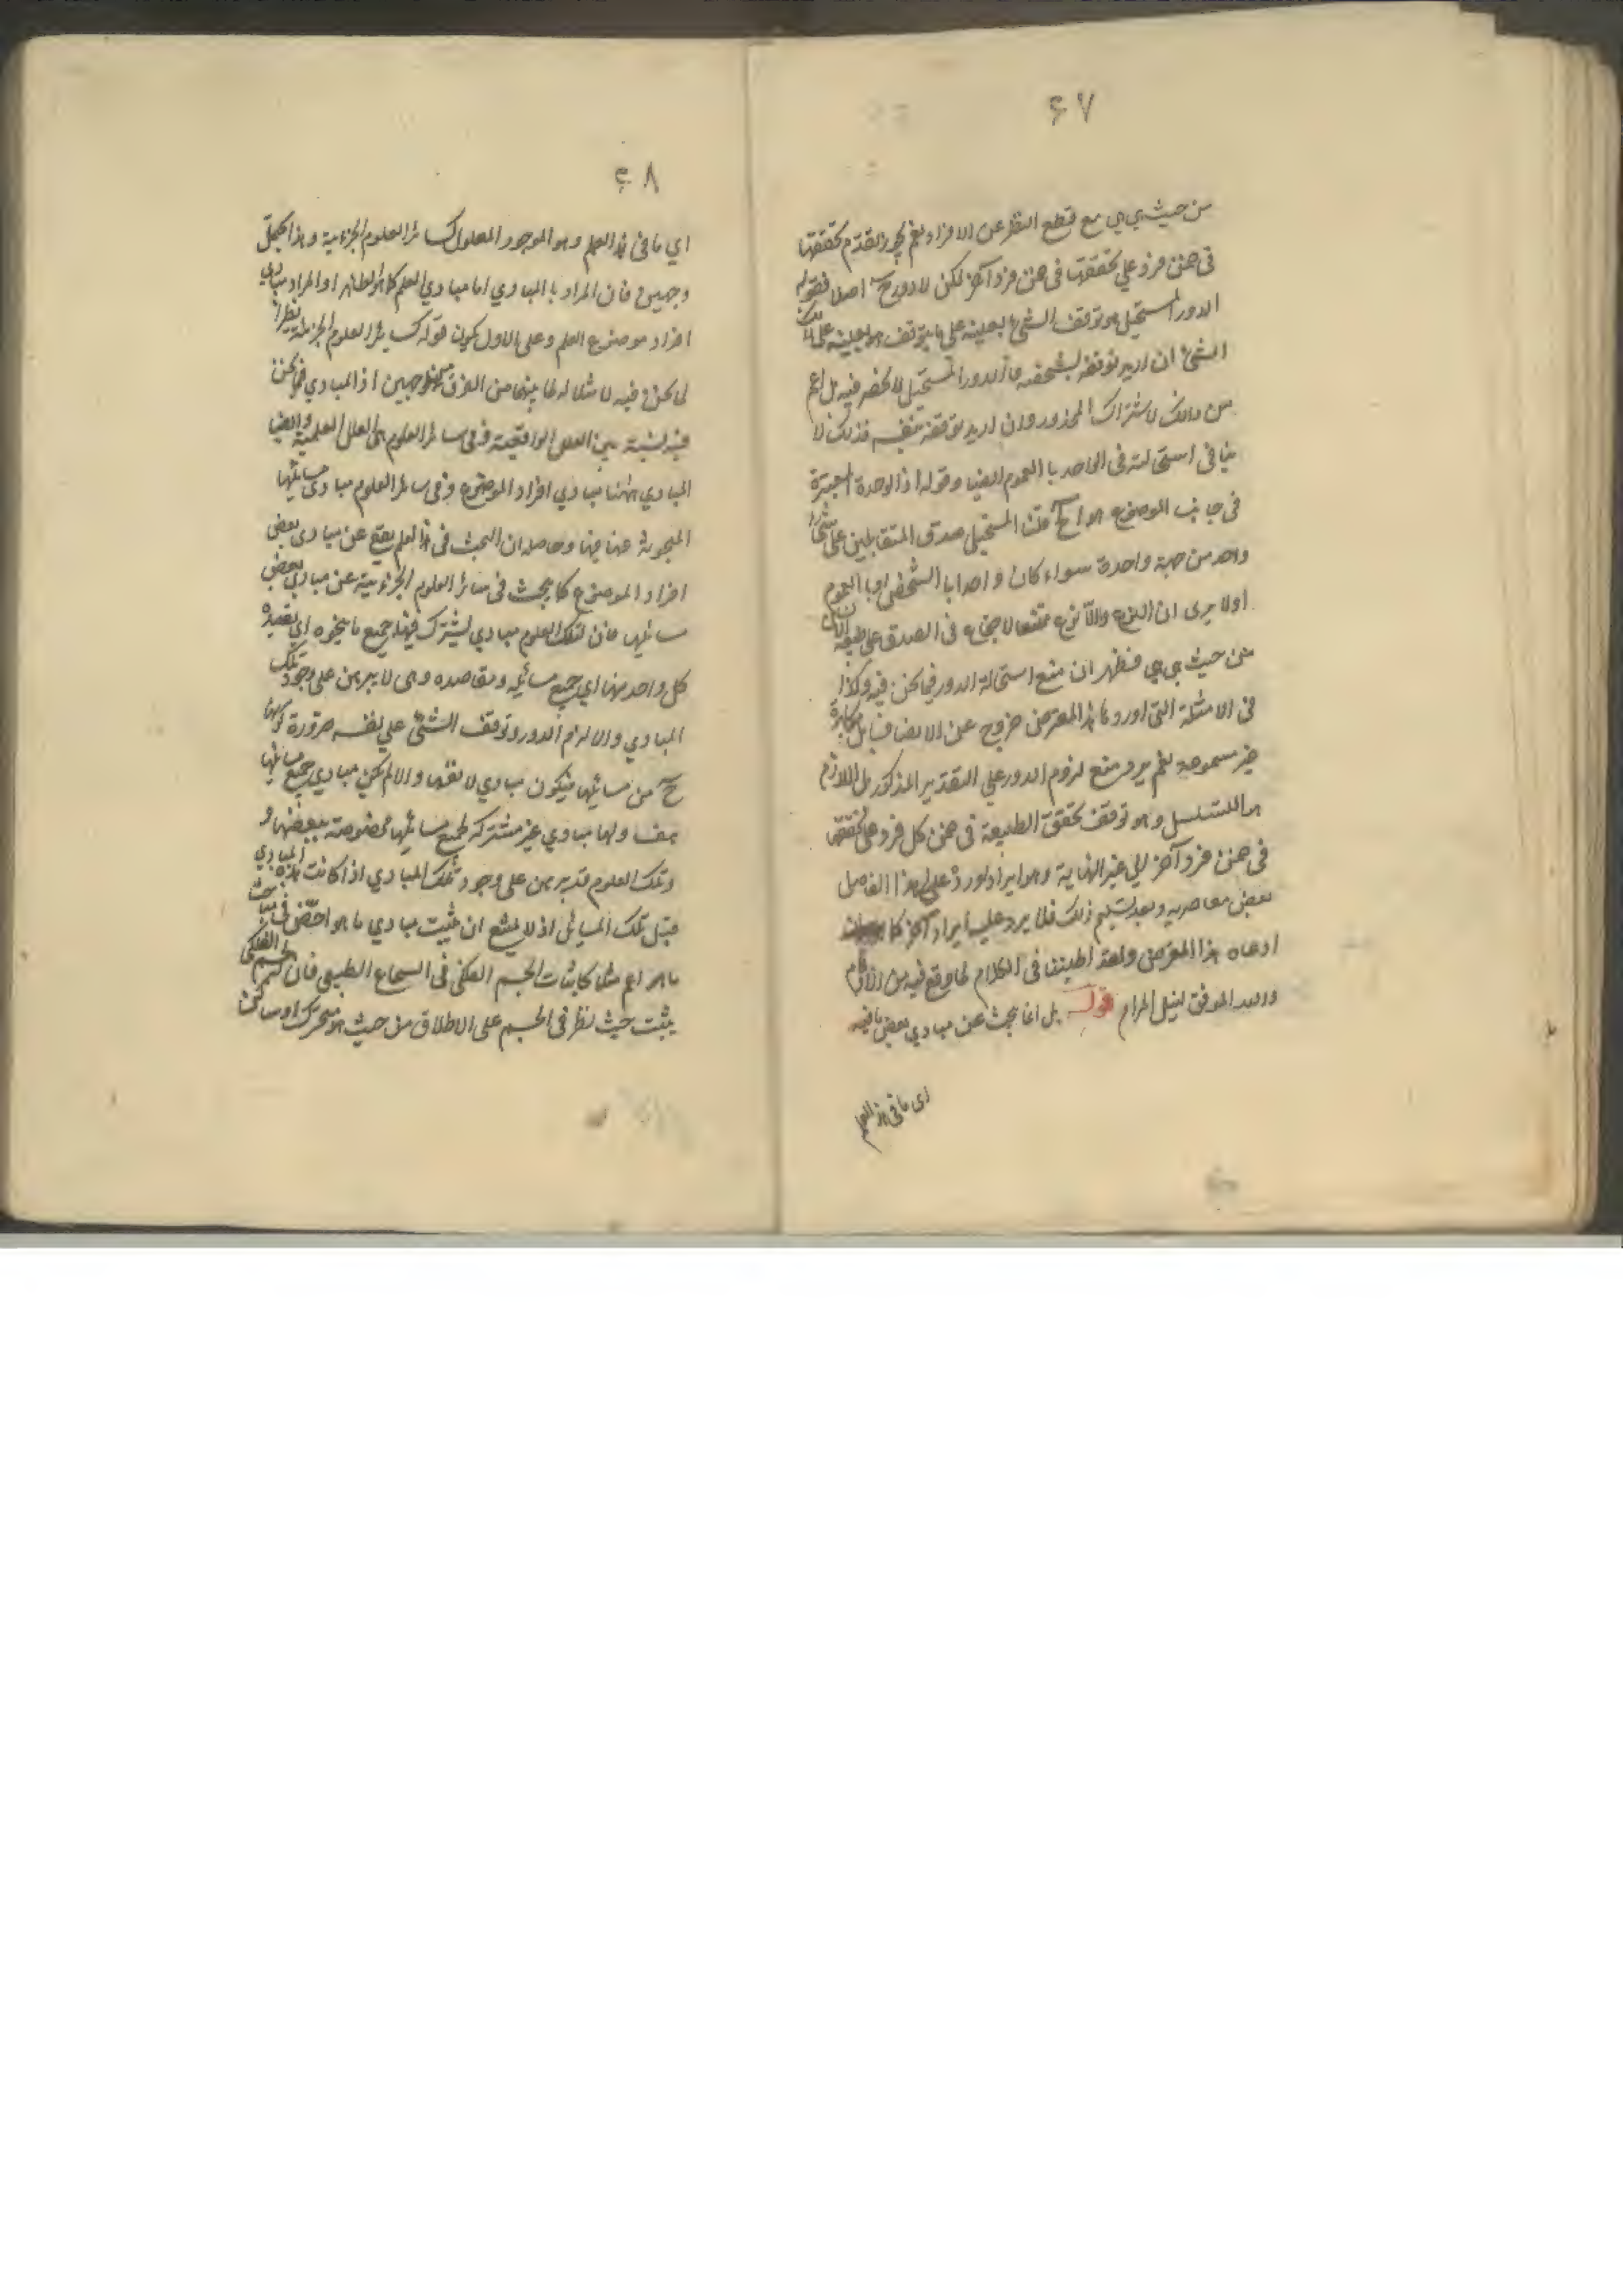 ۶۷
من حيث هي هي مع قطع النظر عن الافراد نعم يجوز تقدم تحققها
في ضمن فرد علي تحققها في ضمن فرد آخر لكن لا دور ح اصلا فقوله
الدور المستحيل هو توقف الشئ بعينه على ما يتوقف هو بعينه على ذلك
الشئ ان اريد توقفه بشخصه فالدور المستحيل لا ينحصر فيه بل اعم
من ذلك لاشتراك المحذور وان اريد توقفه بنفسه فذلك لا
ينافي استحالته في الواحد بالعموم ايضا وقوله اذ الوحدة المعتبرة
في جانب الموضوع هو اح قلت المستحيل صدق المتقابلين على شئ
واحد من جهة واحدة سواء كان واحدا بالشخص او بالعموم
اولا يرى ان النوع واللانوع يمتنع الاجتماع في الصدق على طبيعة الانسان
من حيث هي هي فظهر ان منع استحالة الدور فيما نحن فيه وكذا
في الامثلة التي اوردها هذا المعترض خروج عن الانصاف بل مكابرة
غير مسموعة نعم يرد منع لزوم الدور علي التقدير المذكور بل اللازم
هو التسلسل وهو توقف تحقق الطبيعة في ضمن كل فرد على تحققها
في ضمن فرد آخر الي غير النهاية وهو ايراد اورده علي هذا الفاضل
بعض معاصريه وبعد تسليم ذلك فلا يرد عليه ايراد آخر كما
ادعاه هذا المعترض ولقد اطنبنا في الكلام لما وقع فيه من الاوهام
والله الموفق لنيل المرام قوله بل انما يبحث عن مبادي بعض ما فيه
اي ما في هذا العلم
۶۸
اي ما في هذا العلم وهو الموجود المعلول كسائر العلوم الجزئية وهذا يحتمل
وجهين فان المراد بالمبادي اما مبادي العلم كما هو الظاهر او المراد مبادي
افراد موضوع العلم وعلى الاول يكون قوله كسائر العلوم الجزئية نظيرا
لما نحن فيه لا مثالا له لما بينهما من الفرق من وجهين اذ المبادي فيما نحن
فيه لشيئة من العلل الواقعية وفي سائر العلوم هي العلل العلمية وايضا
المبادي ههنا مبادي افراد الموضوع وفي سائر العلوم مبادي مسائلها
المبحوثة عنها فيها وحاصله ان البحث في هذا العلم يقع عن مبادي بعض
افراد الموضوع كما يبحث في سائر العلوم الجزئية عن مبادي بعض
مسائلها فان لتلك العلوم مبادي يشترك فيها جميع ما ينحوه اي يقصده
كل واحد منها اي جميع مسائله ومقاصده وهي لا يبرهن على وجود تلك
المبادي والا لزم الدور وتوقف الشئ علي نفسه ضرورة كونها
ح من مسائلها فيكون مبادي لانفسها والا لم يكن مبادي جميع مسائلها
هف ولها مبادي غير مشتركة لجميع مسائلها مخصوصة ببعضها و
وتلك العلوم قد يبرهن على وجود تلك المبادي اذا كانت هذه المبادي
قبل تلك المسائل اذ لا يمتنع ان يثبت مبادي ما هو اخص في مباحث
ما هو اعم مثلا كاثبات الجسم الفلكي في السماع الطبيعي فان الجسم الفلكي
يثبت حيث نظر في الجسم على الاطلاق من حيث هو متحرك او ساكن